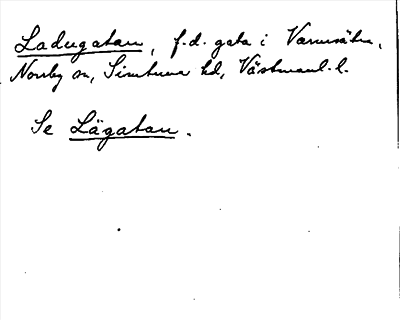 Ladugatan, f.d. gata i Varmsätra,
Norrby sn, Simtuna hd, Västmanl. l.
Se Lägatan.